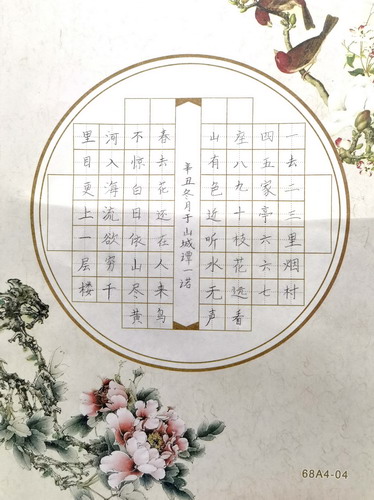 一去二三里烟村
四五家亭六六七
座八九十枝花选看
山有色近听水无声
辛丑冬月于山城谭一诺
春去花还在人来鸟
不惊白日依山尽黄
河入海流欲穷千
里目更上一层楼
68A4-04